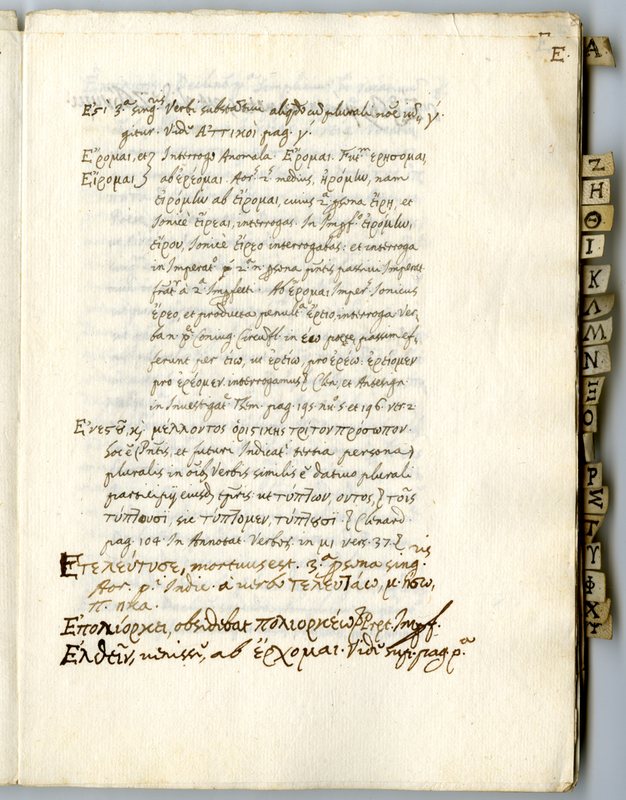 E.
A
Ἐςι 3ª sing. Verbi substantiui aliqdo cu plurali noē
gitur. Vide Ἀττικοὶ pag. γ.
Ἔρομαι, et} Interrogo Anomala Ἔρομαι. Fut. ερησομαι,
Εἴρομαι} ab ερεομαι. Aor. 2. medius, ἠρόμην, nam
εἰρόμην ab εἴρομαι, cuius 2ª psona εἴρη, et
Ionicè εἴρεαι, interrogas. In Impf. εἰρόμην,
εἴρου, Ionicè εἴρεο interrogabas: et interroga
in Imperat. 2. psona pntis passiui Imperat.
2ª Impfecti. Ab ἔρομαι Imper. Ionicus
ἔρεο, et producta penult. ἔρειο interroga. Ver
ba n. pª Coniug. Circufl. in εω passim ef,
ferunt per ειω, ut ἐρείω, pro ἐρέω. ἐρείομεν
pro ἐρέομεν interrogamus} Clen. et Antesign.
in Inuestigat. Them. pag. 195. nu. 5 et 196 vers. 2
Ἐνεςῶ. κ μέλλοντος ὁριςικῆς τρίτον πρόσωπον.
hoc ē (Pntis, et futuri Indicat. tertia persona)
pluralis in oib Verbis similis ē datiuo plurali
participij eiusd. tpris. ut τύπτων, οντος,} τοῖς
τύπτουσι, sic τύπτομεν, τύπτετε} Clenard.
pag. 104. In Annotat. Verbor. in μι vers. 37.}
Ἐτελεύτησε, mortuus est. 3ª psona sing.
Aor. pi Indic. à verbo τελευτάω, μ. ήσω,
π. ηκα.
Ἐπολιόρκει, obsidebat πολιορκέω} Pret. Impf.
Ἐλθεῖν, uenisse, ab ἔρχομαι. Vide supr. pag. pª
Z
H
Θ
I
K
Λ
M
N
Ξ
O
Ρ
Σ
T
Υ
Φ
X